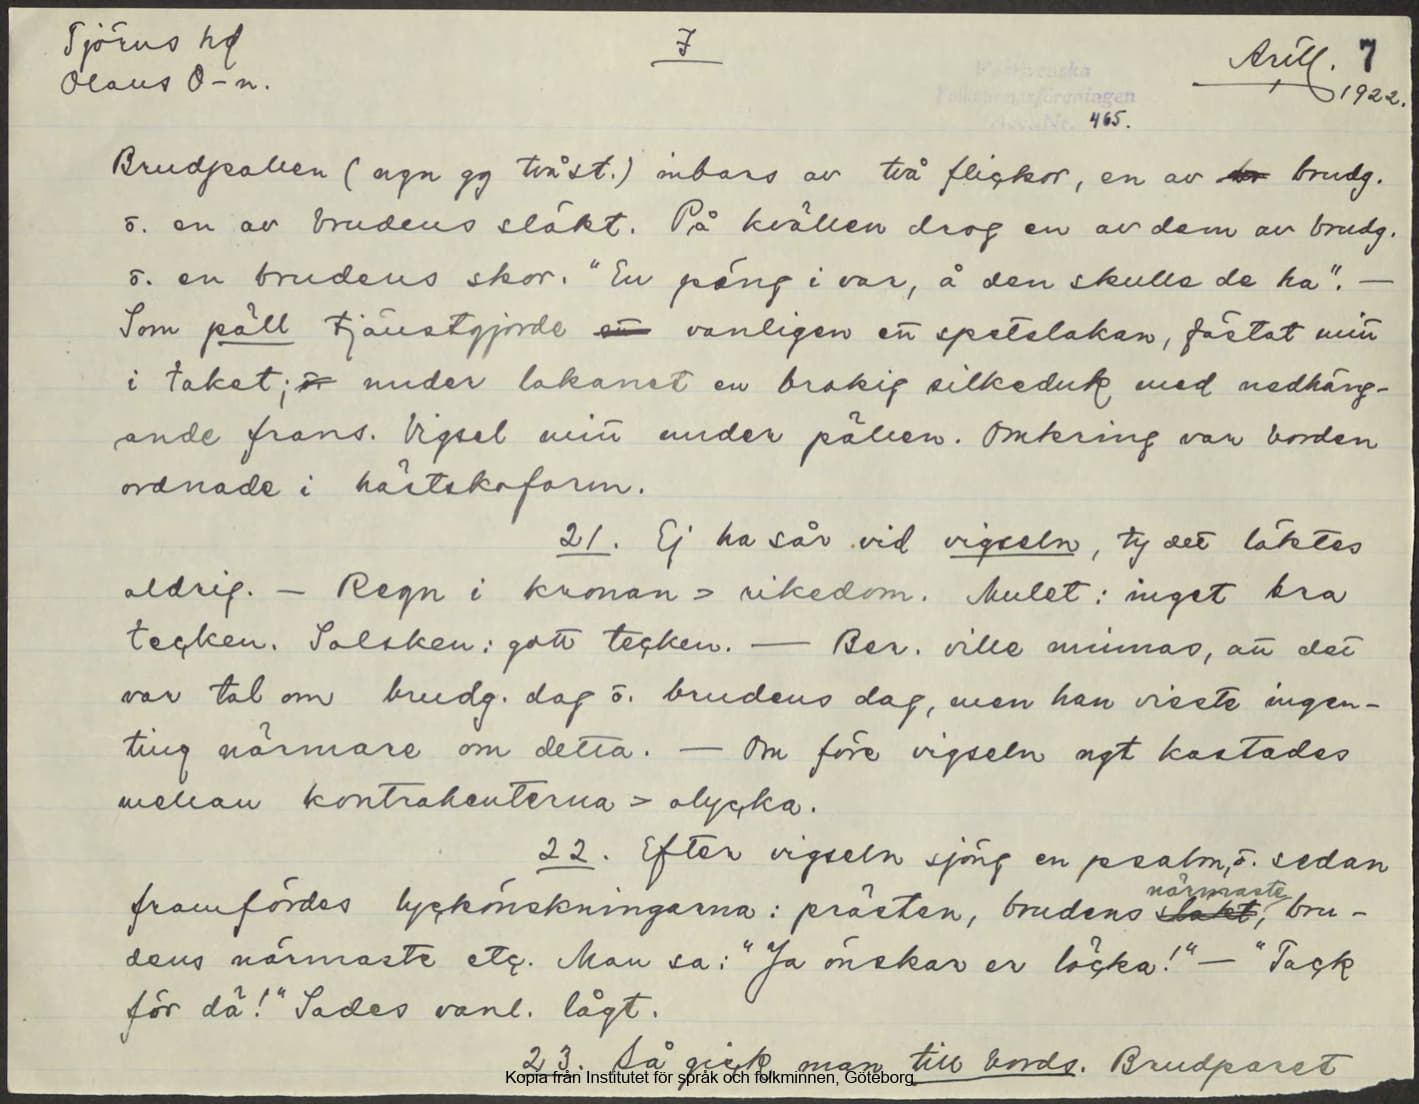 Tjörns hd
Olaus O-n.
7
Aröd. 7
1922.
Västsvenska
Folkminnesföreningen
465.
Brudpallen (ngn gg tvåst.) inbars av två flickor, en av br brudg.
o. en av brudens släkt. På kvällen drog en av dem av brudg.
o. en brudens skor. "En päng i var, å den skulle de ha". —
Som päll tjänstgjorde ett vanligen ett spetslakan, fästat mitt
i taket; o. under lakanet en brokig silkeduk med nedhäng-
ande frans. Vigsel mitt under pällen. Omkring var borden
ordnade i hästskoform.
21. Ej ha sår vid vigseln, ty det läktes
aldrig. — Regn i kronan > rikedom. Mulet: inget bra
tecken. Solsken: gott tecken. — Ber. ville minnas, att det
var tal om brudg. dag o. brudens dag, men han visste ingen-
ting närmare om detta. — Om före vigseln ngt kastades
mellan kontrahenterna > olycka.
22. Efter vigseln sjöng en psalm, o. sedan
framfördes lyckönskningarna: prästen, brudens släkt, närmaste, bru-
dens närmaste etc. Man sa: "Ja önskar er löcka!" — "Tack
för dä!" Sades vanl. lågt.
23. Så gick man till bords. Brudparet
Kopia från Institutet för språk och folkminnen, Göteborg